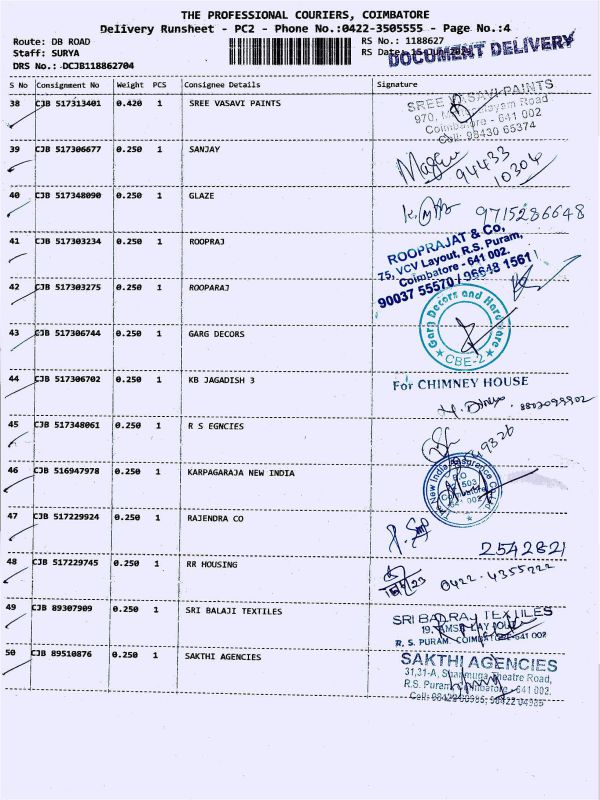 THE PROFESSIONAL COURIERS, COIMBATORE
Delivery Runsheet - PC2 - Phone No.:0422-3505555 - Page No.:4
Route: DB ROAD
RS No.: 1188627
Staff: SURYA
RS Date:
DOCUMENT DELIVERY
DRS No.: -DCJB118862704
S No Consignment No Weight PCS Consignee Details Signature
38 CJB 517313401 0.420 1 SREE VASAVI PAINTS
SREE VASAVI PAINTS
970, Road
Coimbatore - 641 002
Cell: 98430 65374
39 CJB 517306677 0.250 1 SANJAY
94433
10304
40 CJB 517348090 0.250 1 GLAZE
9715286648
41 CJB 517303234 0.250 1 ROOPRAJ
ROOPRAJAT & Co,
75, VCV Layout, R.S. Puram,
Coimbatore - 641 002.
90037 55570 / 96648 1561
42 CJB 517303275 0.250 1 ROOPARAJ
Garg Decors and Hardware
CBE-2
43 CJB 517306744 0.250 1 GARG DECORS
44 CJB 517306702 0.250 1 KB JAGADISH 3
For CHIMNEY HOUSE
45 CJB 517348061 0.250 1 R S EGNCIES
46 CJB 516947978 0.250 1 KARPAGARAJA NEW INDIA
The New India Assurance Co Ltd
47 CJB 517229924 0.250 1 RAJENDRA CO
2542821
48 CJB 517229745 0.250 1 RR HOUSING
0422-4355222
49 CJB 89307909 0.250 1 SRI BALAJI TEXTILES
SRI BALRAJ TEXTILES
R. S. PURAM, COIMBATORE-641 002
50 CJB 89510876 0.250 1 SAKTHI AGENCIES
SAKTHI AGENCIES
31,31-A, Shanmuga Theatre Road,
R.S. Puram, Coimbatore - 641 002.
Cell: 98422 04985